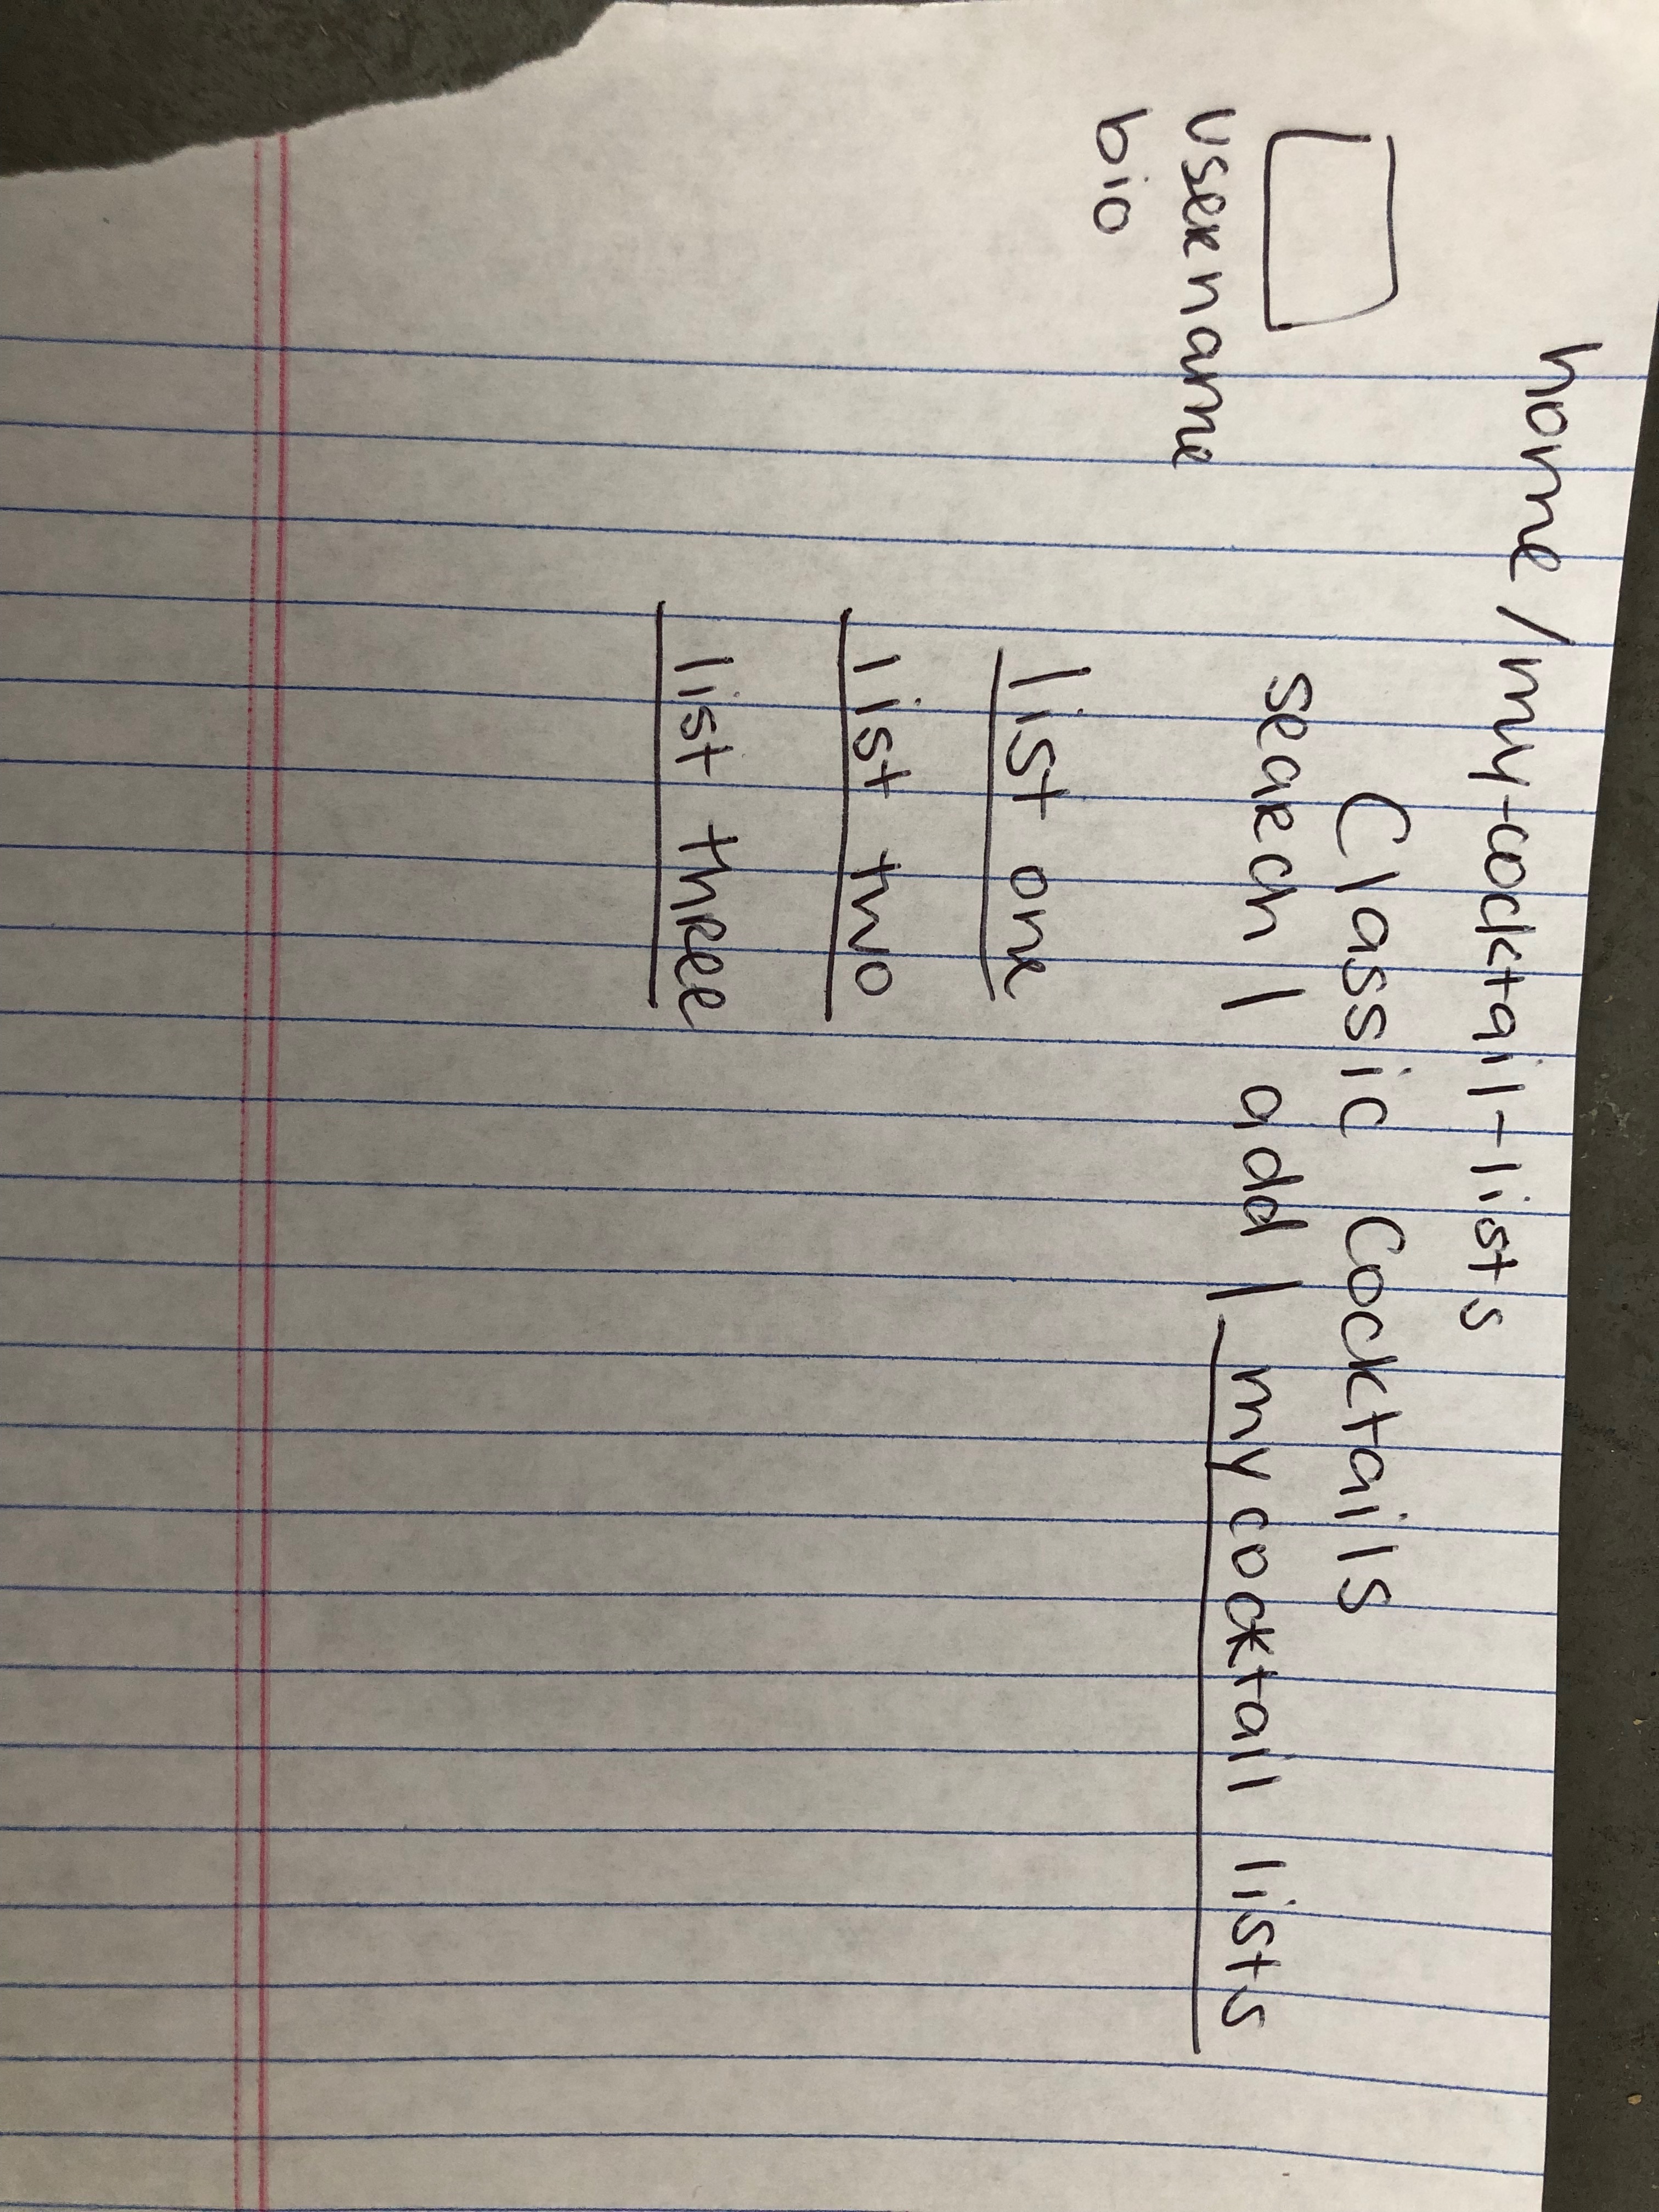 home/my-cocktail-lists
Classic Cocktails
search | add | my cocktail lists
username
bio
list one
list two
list three